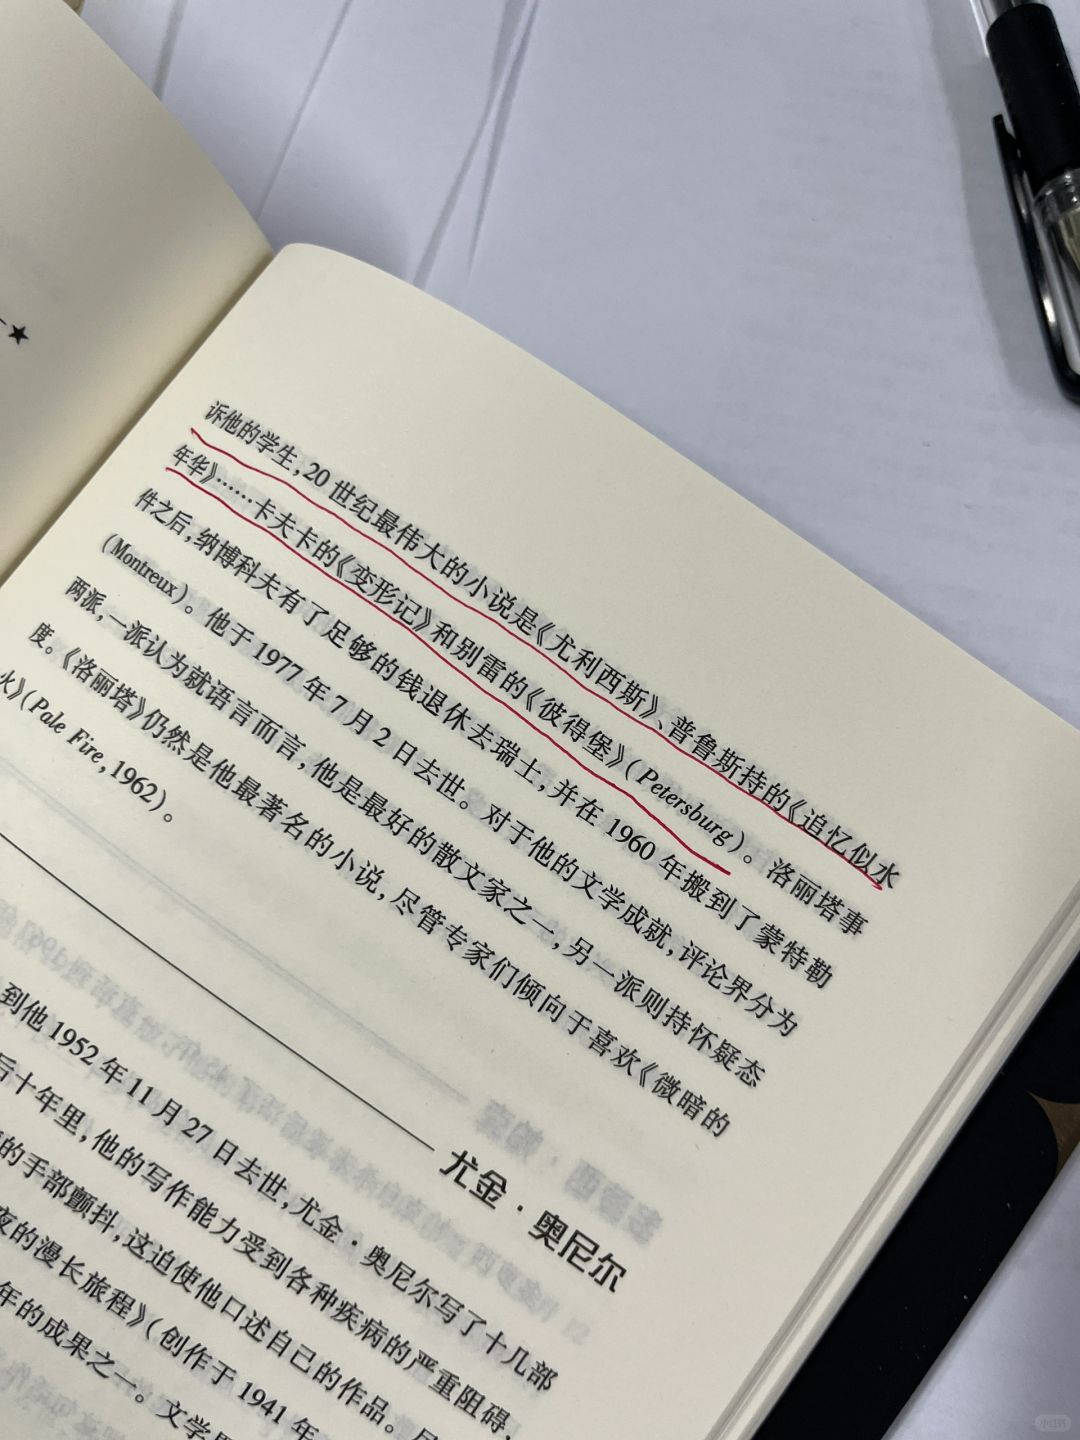 诉他的学生，20世纪最伟大的小说是《尤利西斯》、普鲁斯特的《追忆似水
年华》……卡夫卡的《变形记》和别雷的《彼得堡》（Petersburg）。洛丽塔事
件之后，纳博科夫有了足够的钱退休去瑞士，并在1960年搬到了蒙特勒
（Montreux）。他于1977年7月2日去世。对于他的文学成就，评论界分为
两派，一派认为就语言而言，他是最好的散文家之一，另一派则持怀疑态
度。《洛丽塔》仍然是他最著名的小说，尽管专家们倾向于喜欢《微暗的
火》（Pale Fire，1962）。
尤金·奥尼尔
到他1952年11月27日去世，尤金·奥尼尔写了十几部
后十年里，他的写作能力受到各种疾病的严重阻碍，
的手部颤抖，这迫使他口述自己的作品。尽
夜的漫长旅程》（创作于1941年
年的成果之一。文学
小红书